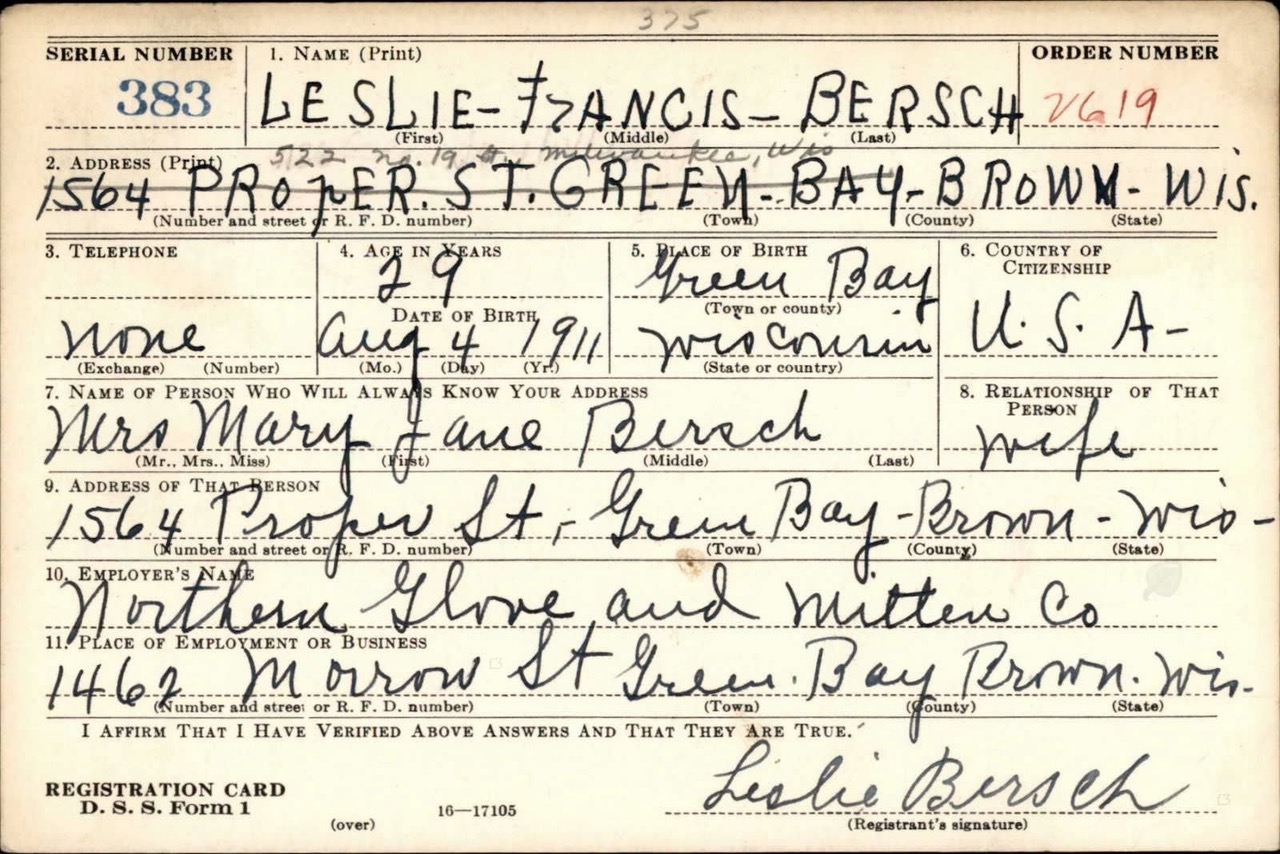 375
SERIAL NUMBER 1. NAME (Print) ORDER NUMBER
383 LESLIE- FrANCIS- BERSCH 2619
(First) (Middle) (Last)
2. ADDRESS (Print) 522 no. 19 St Milwaukee, Wis
1564 PROpER. ST. GREEN- BAY- BROWN- WIS.
(Number and street or R. F. D. number) (Town) (County) (State)
3. TELEPHONE 4. AGE IN YEARS 5. PLACE OF BIRTH 6. COUNTRY OF
CITIZENSHIP
29 Green Bay
DATE OF BIRTH (Town or county)
none Aug 4 1911 Wisconsin U. S. A-
(Exchange) (Number) (Mo.) (Day) (Yr.) (State or country)
7. NAME OF PERSON WHO WILL ALWAYS KNOW YOUR ADDRESS 8. RELATIONSHIP OF THAT
PERSON
Mrs Mary Jane Bersch wife
(Mr., Mrs., Miss) (First) (Middle) (Last)
9. ADDRESS OF THAT PERSON
1564 Proper St, - Green Bay - Brown - Wis -
(Number and street or R. F. D. number) (Town) (County) (State)
10. EMPLOYER'S NAME
Northern Glove and Mitten Co
11. PLACE OF EMPLOYMENT OR BUSINESS
1462 Morrow St Green. Bay Brown. Wis.
(Number and street or R. F. D. number) (Town) (County) (State)
I AFFIRM THAT I HAVE VERIFIED ABOVE ANSWERS AND THAT THEY ARE TRUE.
Leslie Bersch
REGISTRATION CARD
D. S. S. Form 1 16—17105
(over) (Registrant's signature)